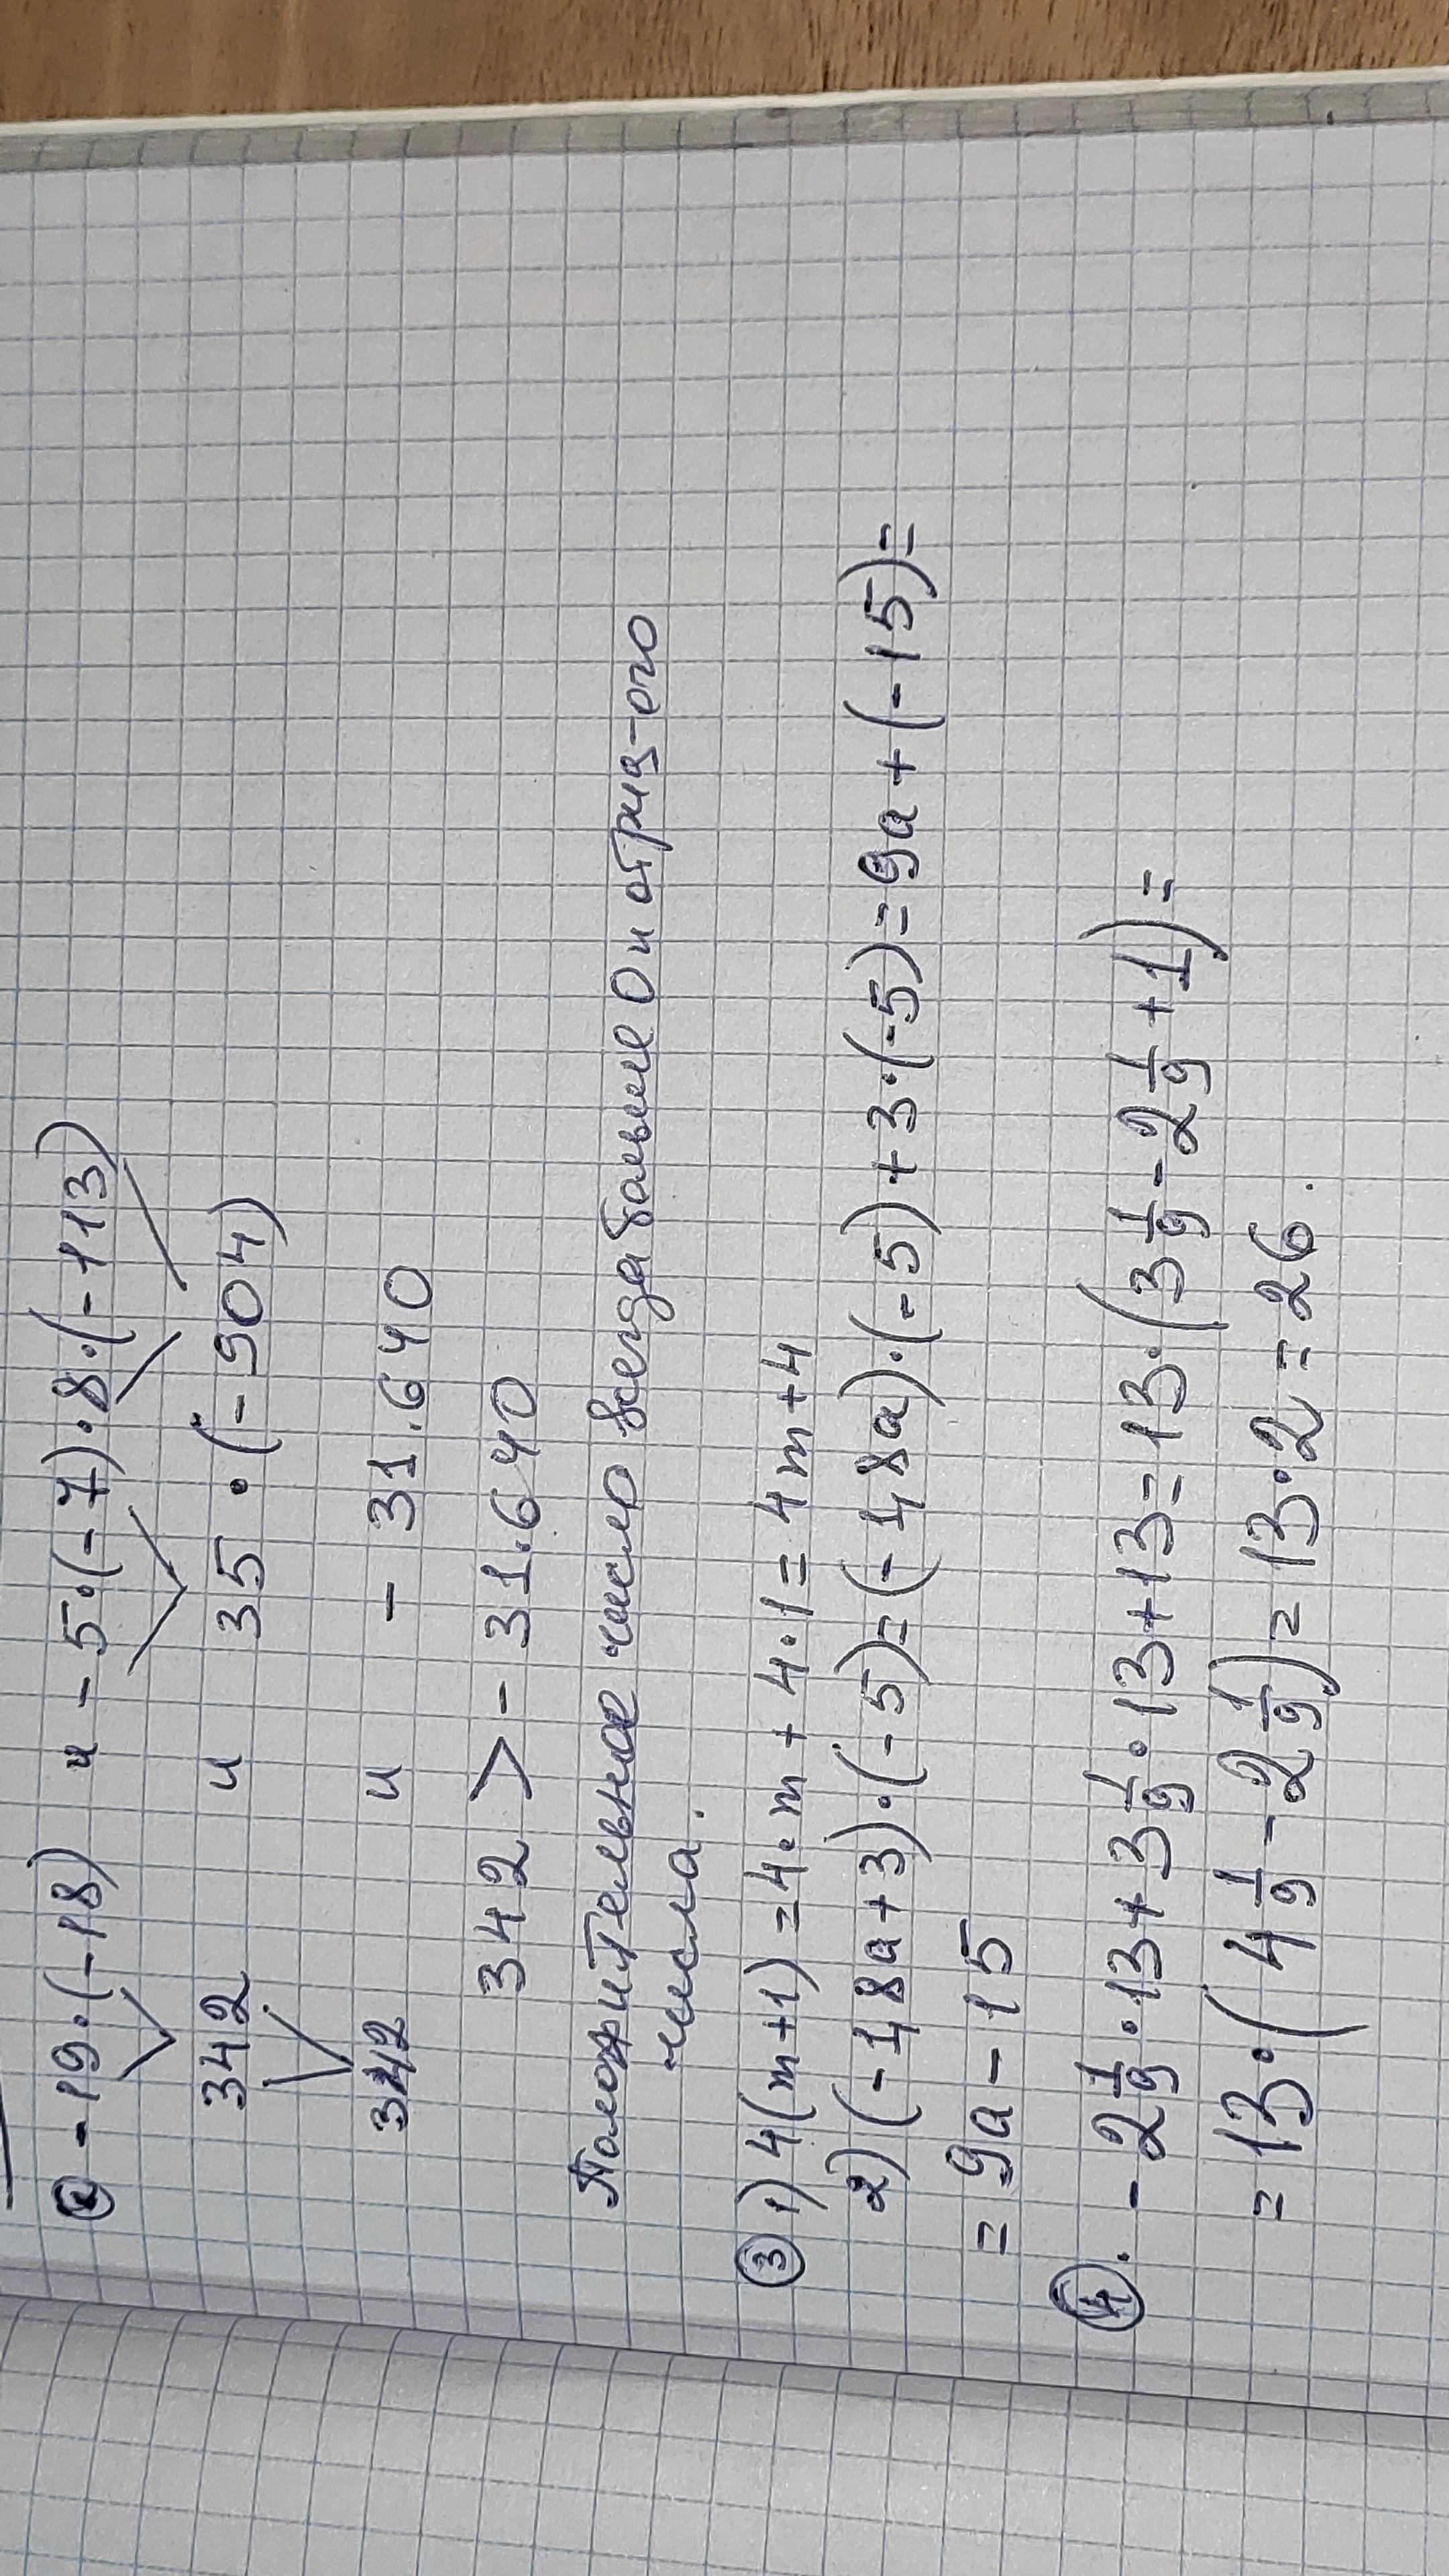 ② -19·(-18) и -5·(-7)·8·(-113)
342 и 35·(-904)
342 и - 31.640
342 > - 31.640
Положительное число всегда больше 0 и отриц-ого
числа.
③ 1) 4(m+1) = 4·m + 4·1 = 4m+4
2) (-1,8a+3)·(-5) = (-1,8a)·(-5)+3·(-5) = 9a+(-15)=
= 9a - 15
④. - 2 1/9 · 13 + 3 1/9 · 13 + 13 = 13·(3 1/9 - 2 1/9 + 1) =
= 13·(4 1/9 - 2 1/9) = 13·2 = 26.